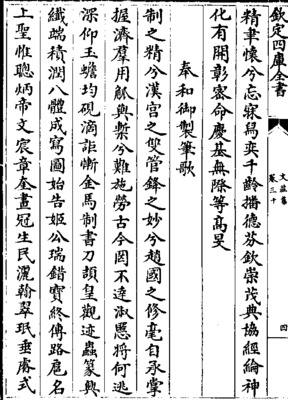 欽定四庫全書
文莊集
卷三十
四
精聿懷兮忘寐舄奕千齡播德芬欽崇茂典協經綸神
化有開彰寂命慶基無際等高旻
奉和御製筆歌
制之精兮漢宫之雙管鋒之妙兮趙國之脩毫自承掌
握濟羣用觚與槧兮難施勞古今罔不達淑慝將何逃
深仰玉蟾均硯滴詎慚金馬制書刀頡皇觀迹蟲篆興
纖端積潤八體成寫圖始告姬公瑞錯寶終傳路扈名
上聖惟聰炳帝文宸章奎畫冠生民灑翰翠珉垂睿式